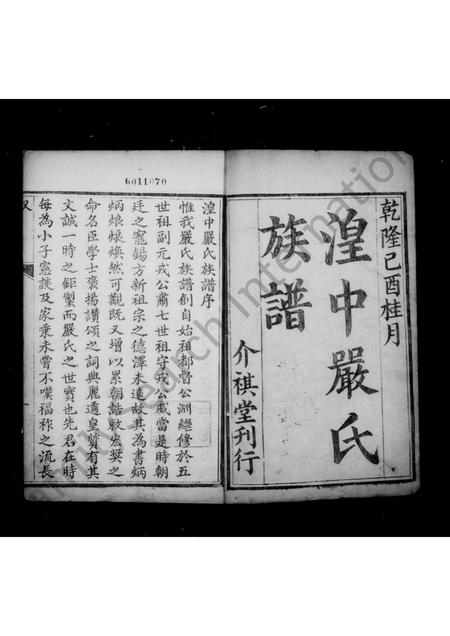 乾隆己酉桂月
湟中嚴氏
族譜
介祺堂刊行
6011670
湟中嚴氏族譜序
惟我嚴氏族譜創自始祖都督公淵繼修於五
世祖副元戎公肅七世祖守戎公威當是時朝
廷之寵錫方新祖宗之德澤未遠故其為書炳
炳烺烺煥然可觀既又增以累朝誥敕宏獎之
命名臣學士褒揚讚頌之詞典麗遒皇質有其
文誠一時之鉅製而嚴氏之世寶也先君在時
每為小子憲談及家乘未嘗不嘆福祚之流長
Family Search International